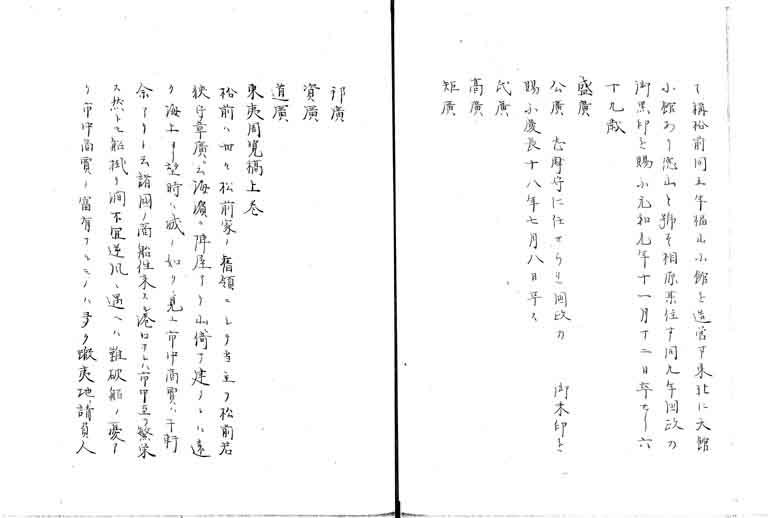 ト稱松前同五年福山小館を造営す東北に大館
小館あり徳山と號す相原某住す同九年国政の
御黒印を賜ふ元和元年十一月十二日卒せし六
十九歳
盛廣
公廣 志摩守に任せらる国政の 御朱印を
賜ふ慶長十八年七月八日卒ス
氏廣
高廣
矩廣
邦廣
資廣
道廣
東夷周覧稿上巻
松前ハ世々松前家ノ舊領ニシテ当主ヲ松前若
狭守章廣ト云海濱ニ陣屋アリ山ニ倚テ建ツ之ハ遠
ク海上ヨリ望時ハ城ノ如ク見ユ市中商賈ハ千軒
余アリト云諸国ノ商船往来スル港口ナレハ市中至テ繁栄
ス然トモ船掛リ澗不宜逆風ニ遇ヘハ難破船ノ憂ア
リ市中商賈ノ富有ナルモノハ多ク蝦夷地請負人